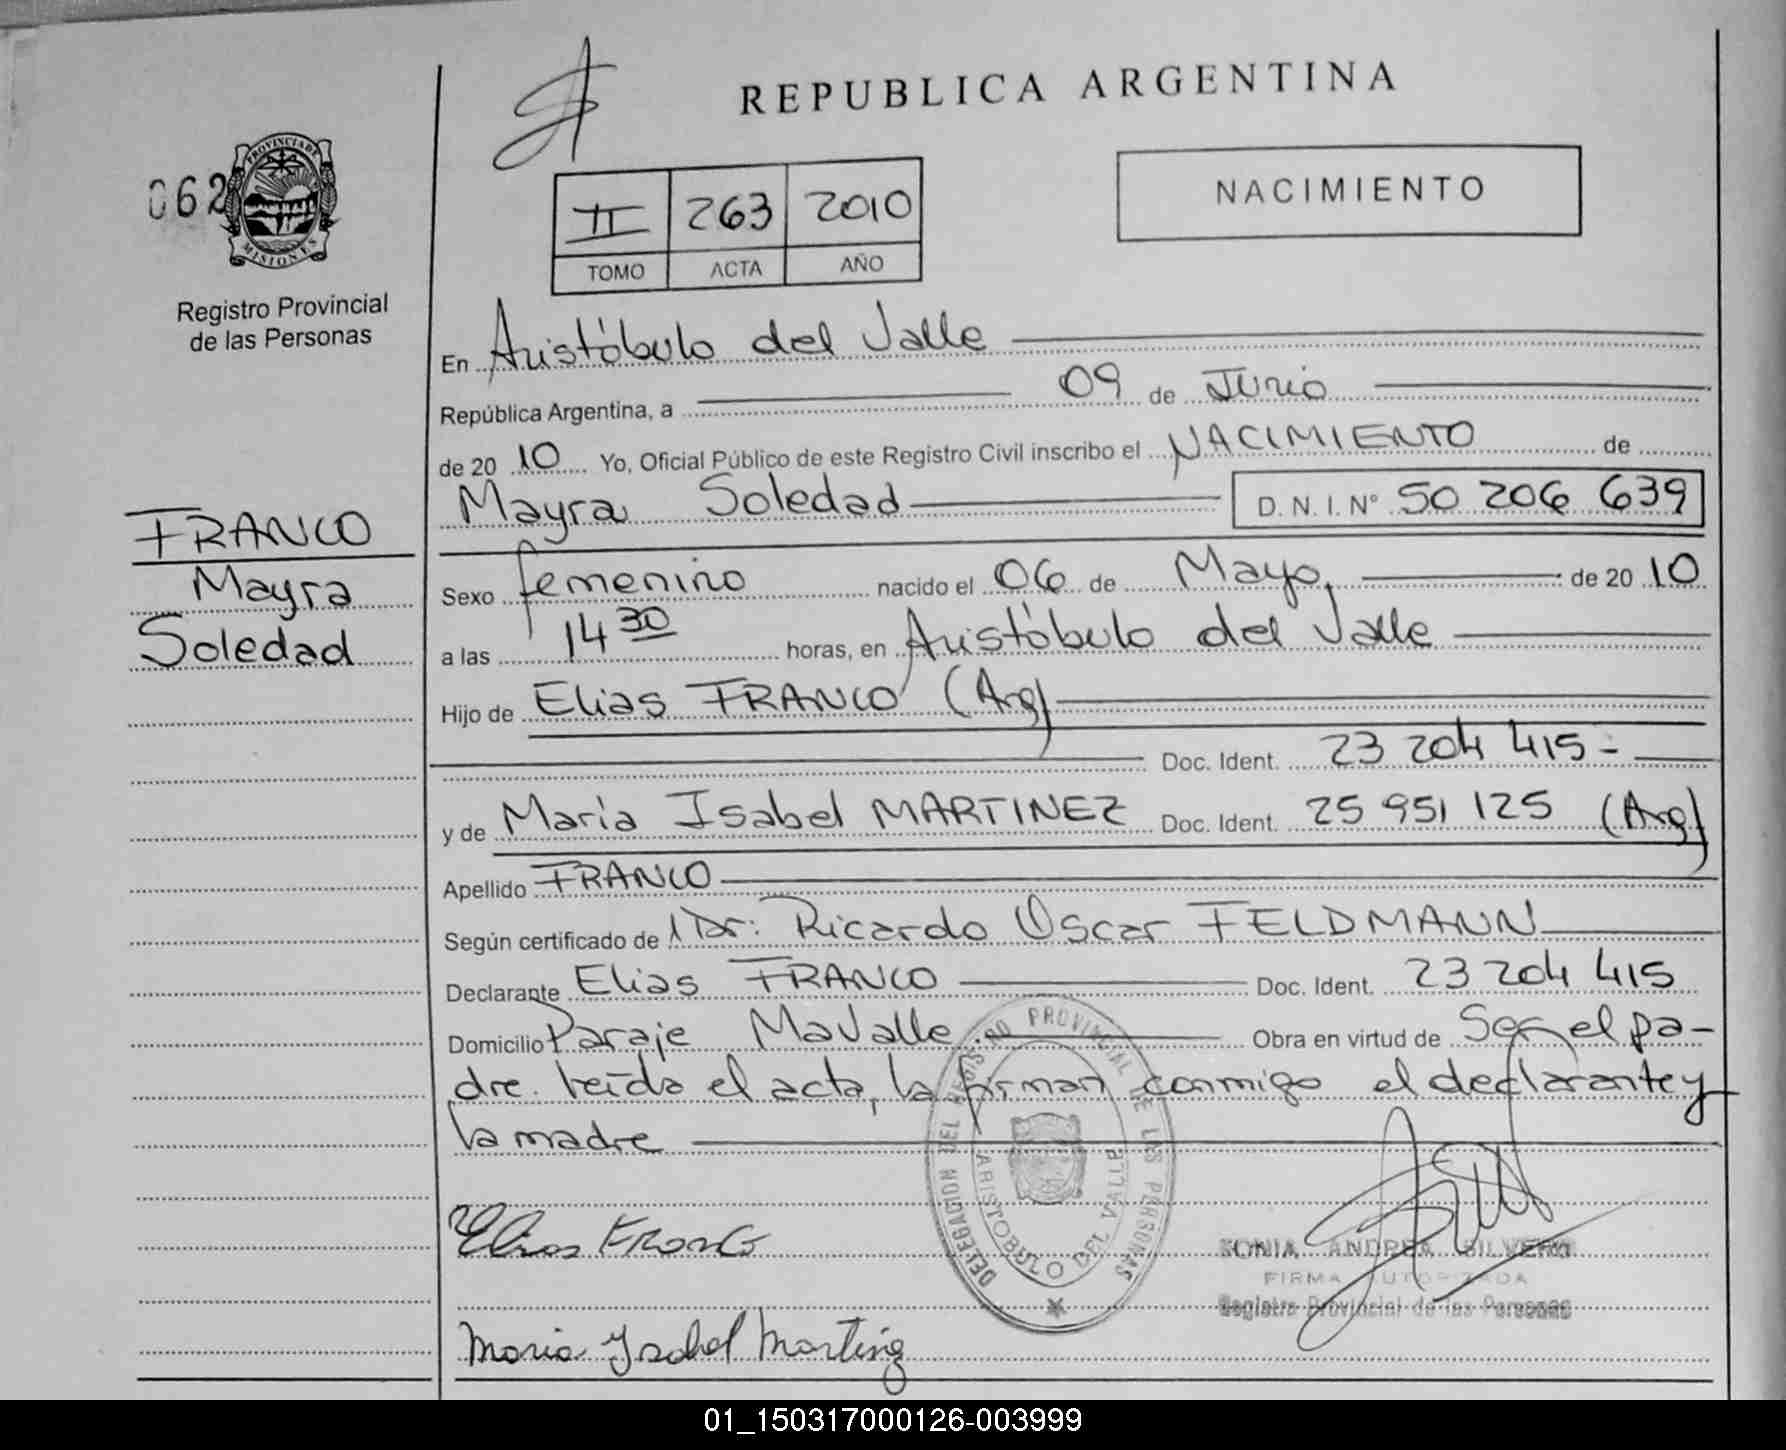 REPUBLICA ARGENTINA
062
PROVINCIA DE
MISIONES
Registro Provincial
de las Personas
II 263 2010
TOMO ACTA AÑO
NACIMIENTO
En Aristóbulo del Valle
República Argentina, a 09 de Junio
de 2010 Yo, Oficial Público de este Registro Civil inscribo el NACIMIENTO de
Mayra Soledad D. N. I. Nº 50 206 639
FRANCO
Mayra
Soledad
Sexo femenino nacido el 06 de Mayo, de 2010
a las 14 30 horas, en Aristóbulo del Valle
Hijo de Elias FRANCO (Arg)
Doc. Ident. 23 204 415-
y de María Isabel MARTINEZ Doc. Ident. 25 951 125 (Arg)
Apellido FRANCO
Según certificado de Dr: Ricardo Oscar FELDMANN
Declarante Elias FRANCO Doc. Ident. 23 204 415
Domicilio Paraje MaValle. Obra en virtud de Ser el pa-
dre. leída el acta, la firman conmigo el declarante y
la madre
DELEGACION DEL REGISTRO PROVINCIAL DE LAS PERSONAS
ARISTOBULO DEL VALLE
Elias Franco
SONIA ANDREA SILVERO
FIRMA AUTORIZADA
Registro Provincial de las Personas
Maria Ysabel Martinez
01_150317000126-003999